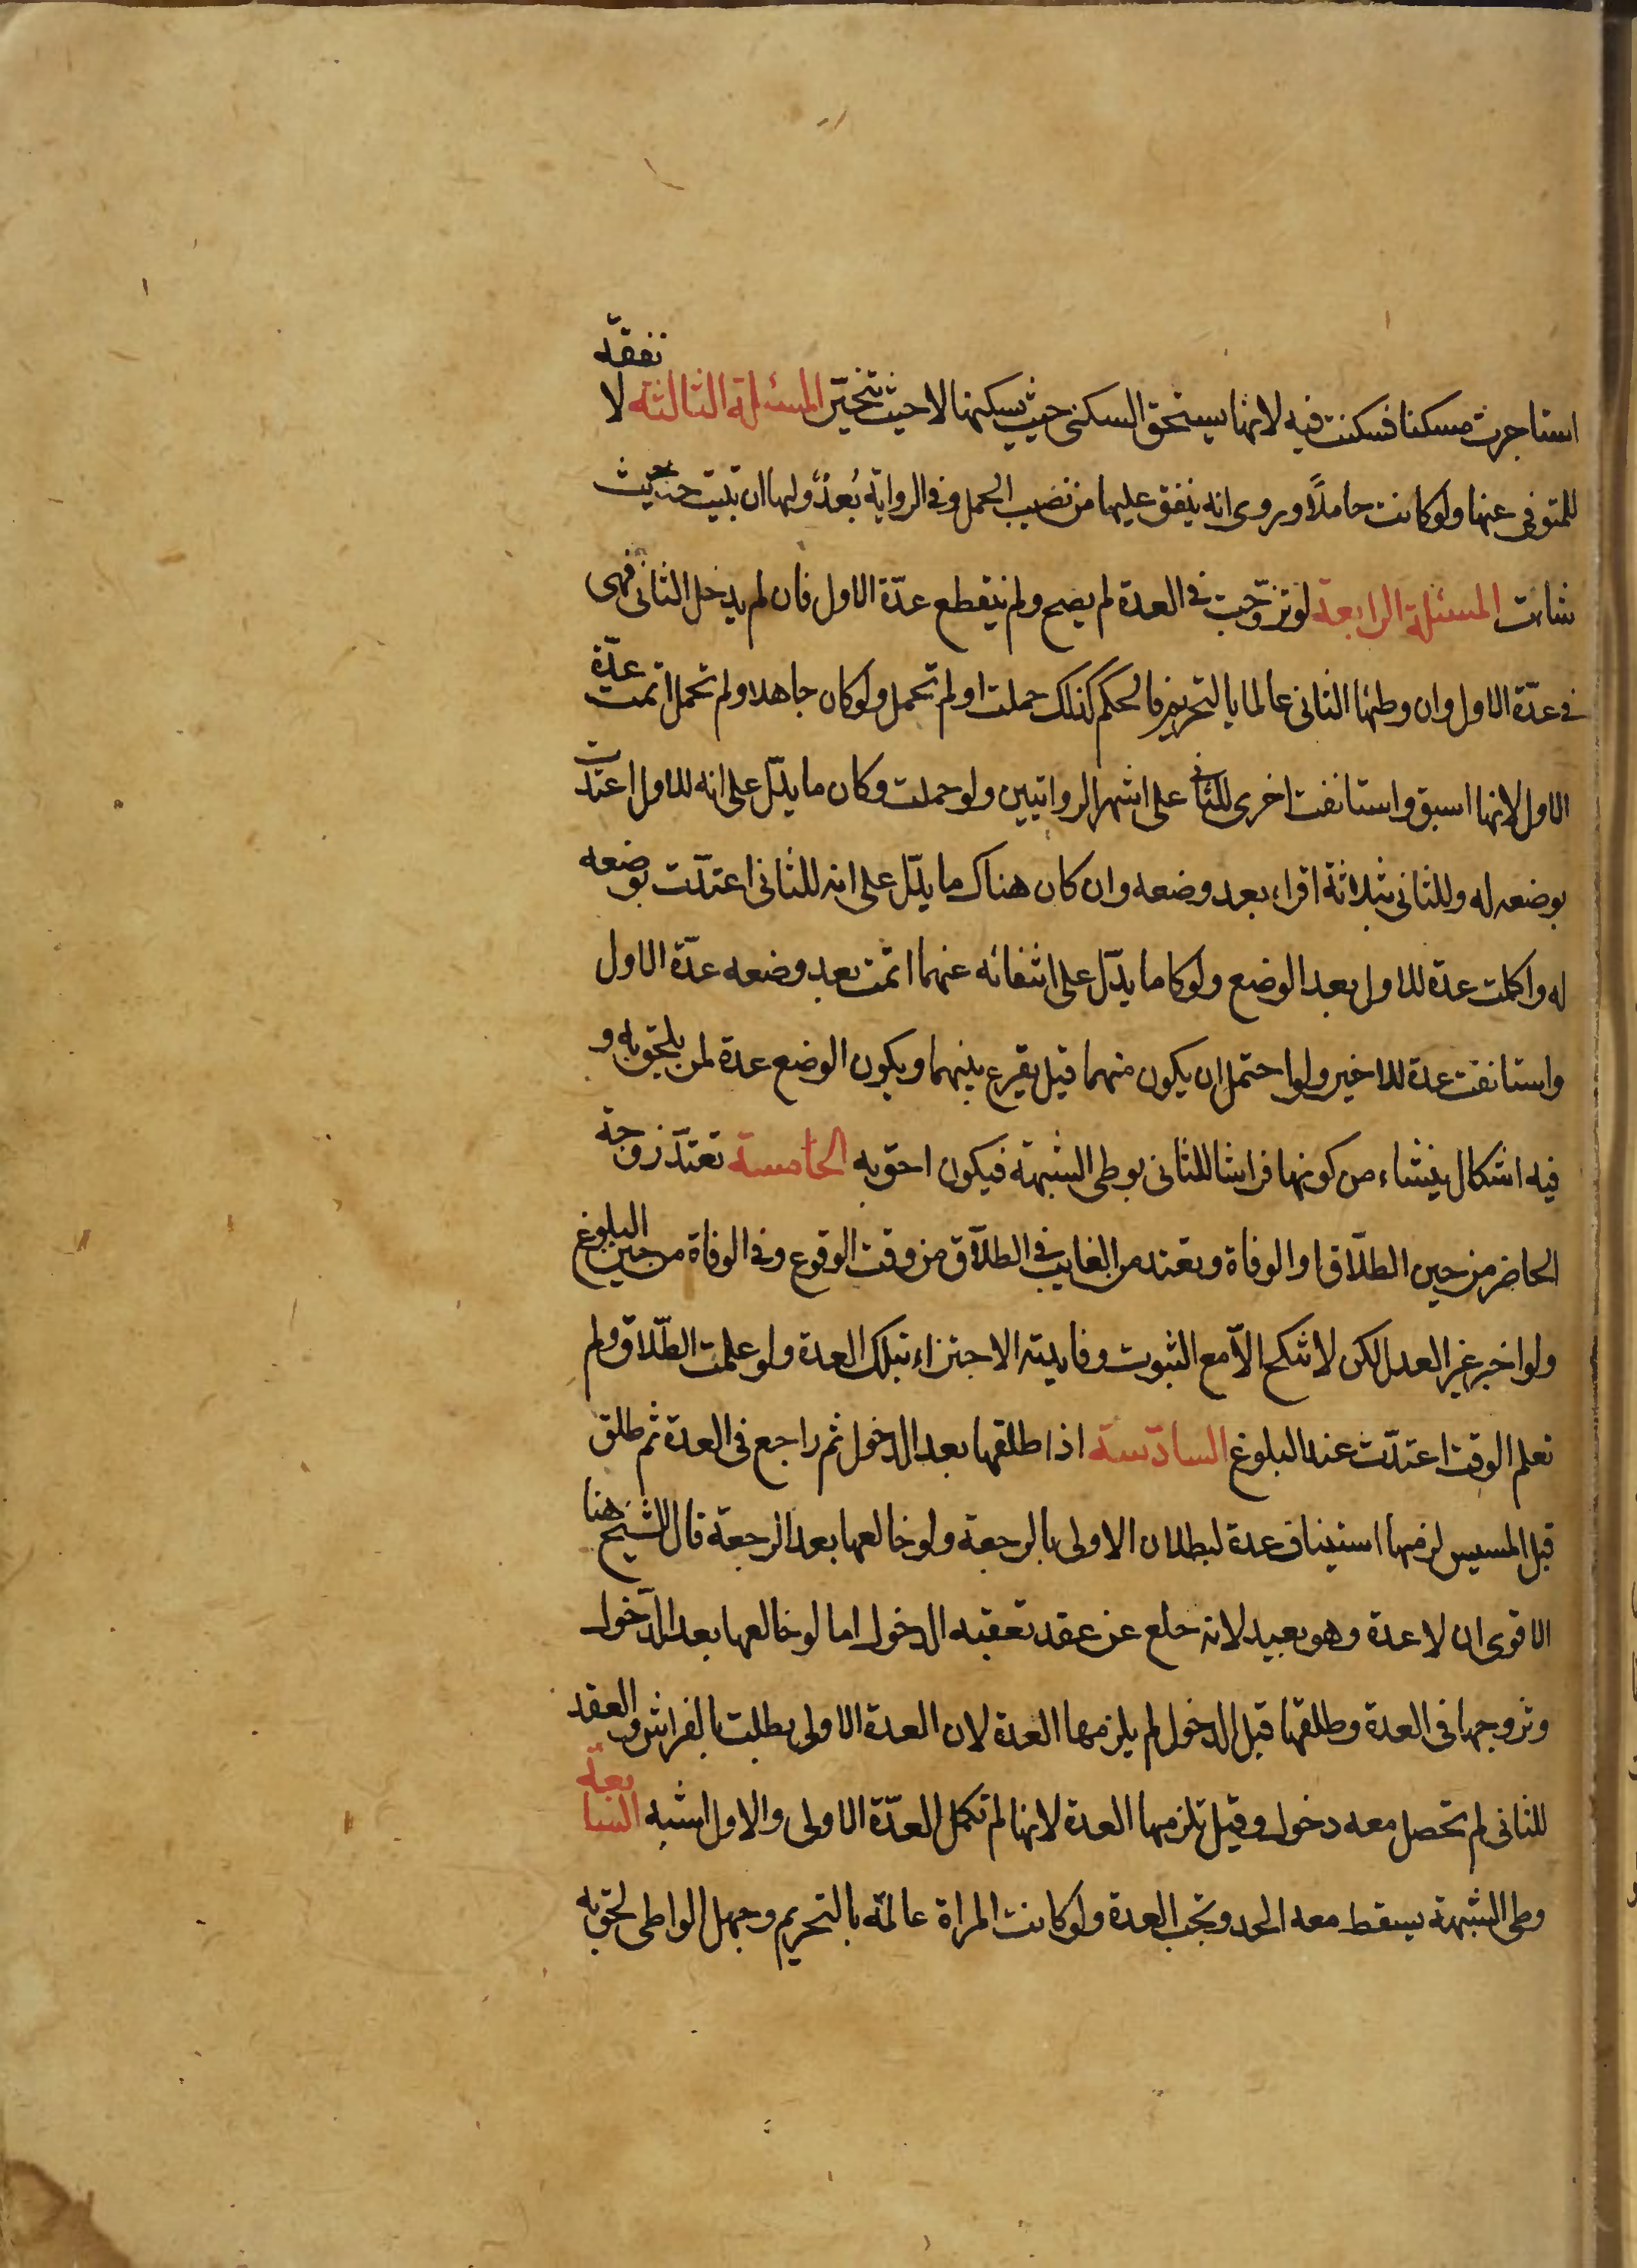 استاجرت مسكنا فسكنت فيه لانها يستحق السكنى حيث يسكنها لا حيث تتخيّر المسئلة الثالثة لا نفقة
للمتوفى عنها ولو كانت حاملاً وروى انه ينفق عليها من نصيب الحمل وفى الرواية بُعدٌ ولها ان تبيت حيث
شائت المسئلة الرابعة لو تزوّجت فى العدة لم يصح ولم ينقطع عدّة الاول فان لم يدخل الثانى فهى
فى عدّة الاول وان وطئها الثانى عالما بالتحريم فالحكم كذلك حملت او لم تحمل ولو كان جاهلا ولم تحمل اتمت عدّة
الاول لانها اسبق واستانفت اخرى للثانى على اشهر الروايتين ولو حملت وكان ما يدّل على انه للاول اعتدّت
بوضعه له وللثانى بثلاثة اقراء بعد وضعه وان كان هناك ما يدّل على انه للثانى اعتدّت بوضعه
له واكملت عدة للاول بعد الوضع ولو كا ما يدّل على انتفائه عنهما اتمت بعد وضعه عدّة الاول
واستانفت عدة للاخير ولو احتمل ان يكون منهما قيل يقرع بينهما ويكون الوضع عدة لمن يلحق به و
فيه اشكال ينشاء من كونها فراشا للثانى بوطى الشبهة فيكون احق به الخامسة تعتدّ زوجة
الحاضر من حين الطلّاق او الوفاة وتعتد من الغايب فى الطلّاق من وقت الوقوع وفى الوفاة من حين البلوغ
ولو اخبر غير العدل لكن لا تنكح الّا مع الثبوت وفايدته الاجتزاء بتلك العدة ولو علمت الطّلاق ولم
تعلم الوقت اعتدّت عند البلوغ السادسة اذا طلقها بعد الدخول ثم راجع فى العدة ثم طلق
قبل المسيس لزمها استيناف عدة لبطلان الاولى بالرجعة ولو خالعها بعد الرجعة قال الشيخ هنا
الاقوى ان لا عدة وهو بعيد لانه خلع عن عقد تعقبه الدخول اما لو خالعها بعد الدّخول
وتزوجها فى العدة وطلقها قبل الدخول لم يلزمها العدة لان العدة الاولى بطلت بالفراش والعقد
للثانى لم تحصل معه دخول وقيل تلزمها العدة لانها لم تكمل العدّة الاولى والاول اشبه السابعة
وطى الشبهة يسقط معه الحد وتجب العدة ولو كانت المراة عالمة بالتحريم وجهل الواطى لحق به